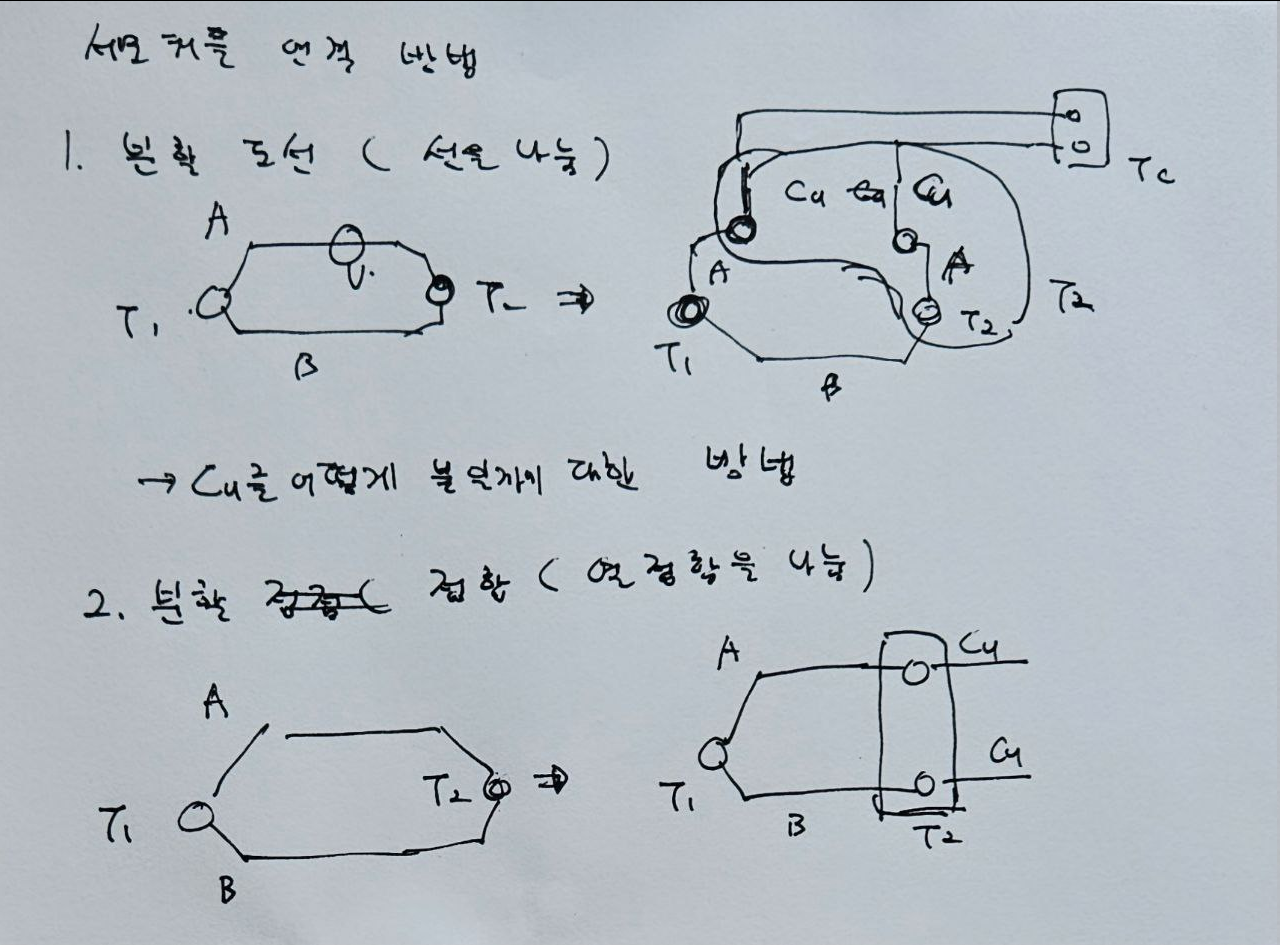 써모커플 연결 방법
1. 분할 도선 ( 선을 나눔)
A
V.
T1
T2
B
⇒
Cu Cu Cu
Tc
A
A
T1
T2
T2
B
→ Cu를 어떻게 붙일지에 대한 방법
2. 분할 접합 ( 열접합을 나눔)
A
T1
T2
B
⇒
A
Cu
T1
Cu
B
T2